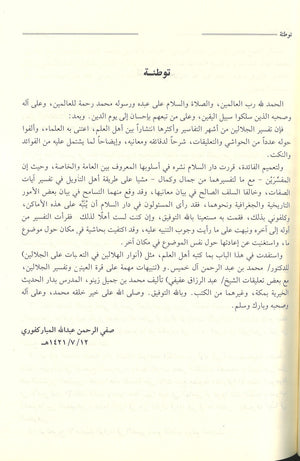 توطئة
توطئــة
الحمد لله رب العالمين، والصلاة والسلام على عبده ورسوله محمد رحمة للعالمين، وعلى آله
وصحبه الذين سلكوا سبيل اليقين، وعلى من تبعهم بإحسان إلى يوم الدين. وبعد:
فإن تفسير الجلالين من أشهر التفاسير وأكثرها انتشاراً بين أهل العلم، اعتنى به العلماء، وألفوا
حوله عدداً من الحواشي والتعليقات، شرحاً لدقائقه ومعانيه، وإيضاحاً لما يشتمل عليه من الفوائد
والنكت.
ولتعميم الفائدة، قررت دار السلام نشره في أسلوبها المعروف بين العامة والخاصة، وحيث إن
المفسِّرَيْن - مع ما لتفسيرهما من جمال وكمال - مشيا على طريقة أهل التأويل في تفسير آيات
الصفات، وخالفا السلف الصالح في بيان معانيها، وقد وقع منهما التسامح في بيان بعض الأمور
التاريخية والجغرافية ونحوهما، فقد رأى المسئولون في دار السلام أن يُنَبَّه على هذه الأماكن،
وكلفوني بذلك، فقمت به مستعينا بالله التوفيق، وإن كنت لست أهلًا لذلك فقرأت التفسير من
أوله إلى آخره ونبهت على ما رأيت وجوب التنبيه عليه، وقد اكتفيت بحاشية في مكان حول موضوع
ما، واستغنيت عن إعادتها حول نفس الموضوع في مكان آخر.
واستفدت في هذا الباب بما كتبه أهل العلم، مثل (أنوار الهلالين في التعقبات على الجلالين)
للدكتور/ محمد بن عبد الرحمن آل خميس. و(تنبيهات مهمة على قرة العينين وتفسير الجلالين،
مع بعض تعليقات الشيخ/ عبد الرزاق عفيفي) تأليف محمد بن جميل زينو، المدرس بدار الحديث
الخيرية بمكة، وغيرهما من الكتب. وبالله التوفيق. وصلى الله على خير خلقه محمد، وعلى آله
وصحبه وبارك وسلم.
صفي الرحمن عبدالله المباركفوري
١٤٢١/٧/١٢هـ